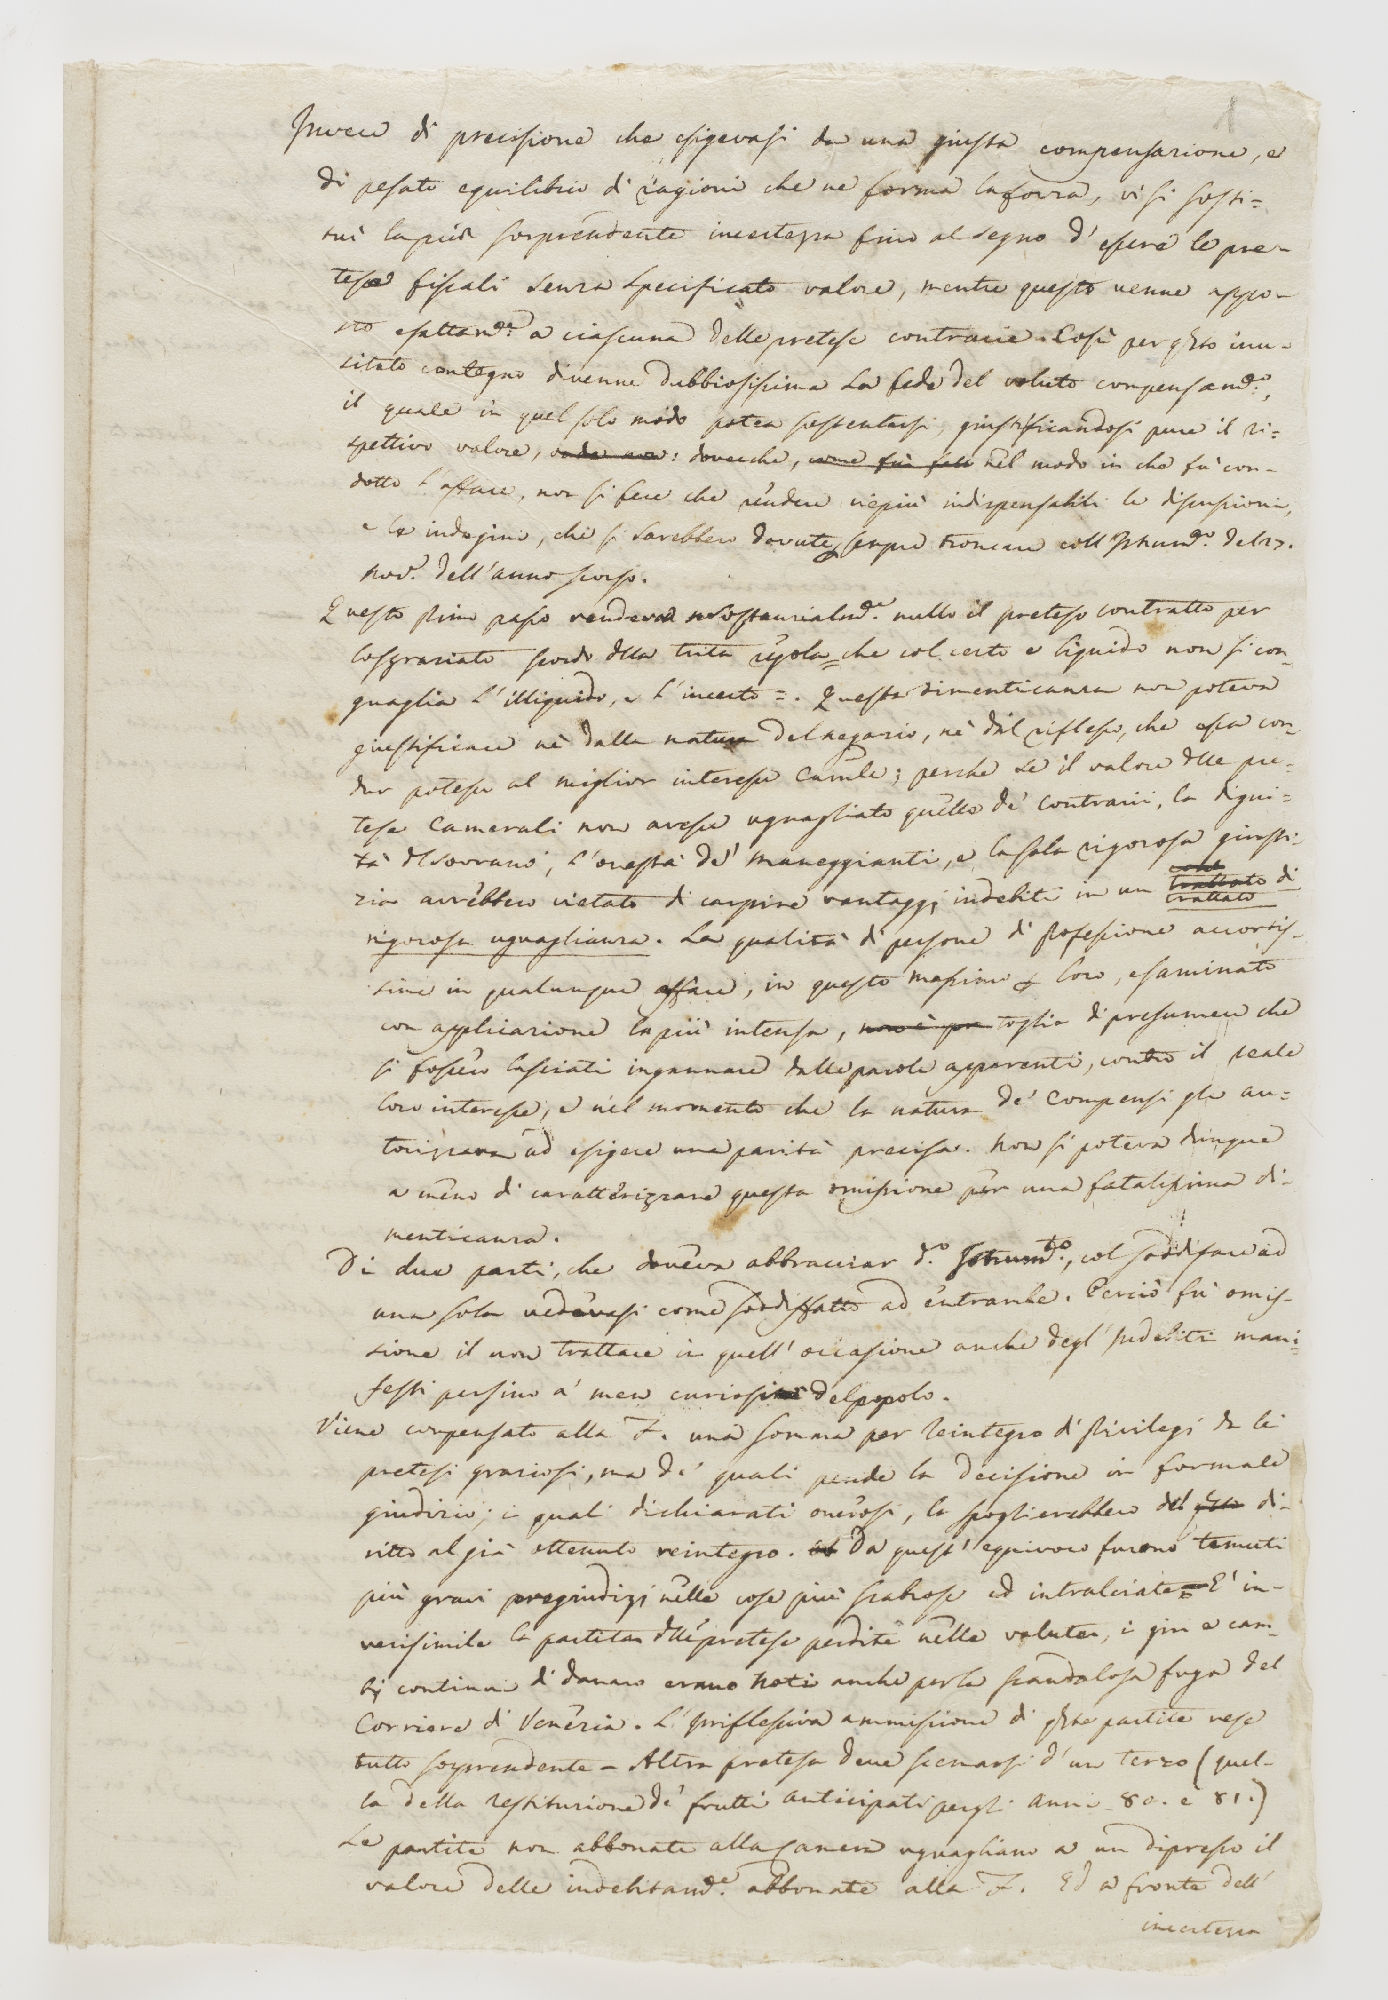 1
Invece di precisione che esigevasi da una giusta compensazione, e
di pesato equilibrio di ragioni che ne forma la forza, vi si sosti=
tuì la più sorprendente incertezza fino al segno d'essere le pre-
tese fiscali senza specificato valore, mentre questo venne appo-
sto esattam.e a ciascuna delle pretese contrarie. Così per q.sto inu-
sitato contegno divenne dubbiosissima la fede del voluto compensam.o,
il quale in quel solo modo potea sostentarsi, giustificandosi pure il ri=
spettivo valore, : dovecche, come fù fatto nel modo in che fù con-
dotto l'affare, non si fece che rendere viepiù indispensabili le discussioni,
e le indagini, che si sarebbero dovute sempre troncare coll'Istrum.o del 27.
Nov.e dell'anno scorso.
Questo primo passo rendeva sostanzialm.e nullo il preteso contratto per
lo sgraziato scordo della trita regola = che col certo e liquido non si con-
guaglia l'illiquido, e l'incerto =. Questa dimenticanza non poteva
giustificare nè dalla natura del negozio, nè dal riflesso, che essa con-
dur potesse al miglior interesse Cam.le; perche se il valore delle pre-
tese Camerali non avesse uguagliato quello de' contrarii, la digni=
tà del Sovrano, l'onestà de' maneggianti, e la sola rigorosa giusti-
zia avrebbero vietato di carpire vantaggi indebiti in un trattato trattato di
rigorosa uguaglianza. La qualità di persone di professione accortis-
sime in qualunque affare, in questo massimo per loro, esaminato
con applicazione la più intensa, non è per toglie di presumere che
si fossero lasciati ingannare dalle parole apparenti, contro il reale
loro interesse, e nel momento che la natura de' compensi gli au=
torizzava ad esigere una parità precisa. Non si poteva dunque
a meno di caratterizzare questa omissione per una fatalissima di-
menticanza.
Di due parti, che doveva abbracciar d.o Istrum.to, col soddisfare ad
una sola vedevasi come soddisfatto ad entrambe. Perciò fù omis-
sione il non trattare in quell'occasione anche degl'Indebiti mani=
festi persino a' men curiosi del popolo.
Viene compensato alla F. una somma per reintegro di Privilegi da lei
pretesi graziosi, ma de' quali pende la decisione in formale
giudizio; i quali dichiarati onerosi, la spoglierebbero del di-
ritto al già ottenuto reintegro. Da quest'equivoco furono temuti
più gravi pregiudizi nelle cose più scabrose ed intralciate = E' in-
verisimile la partita delle pretese perdite nelle valute, i giri e cam-
bj continui di danaro erano noti anche per la scandalosa fuga del
Corriere di Venezia. L'irriflessiva ammissione di q.ste partite rese
tutto sorprendente - Altra pretesa deve scemarsi d'un terzo (quel-
la della restituzione de' frutti anticipati pegli anni 80. e 81.)
Le partite non abbonate alla Camera uguagliano a un dipresso il
valore delle indebitam.e abbonate alla F. Ed a fronte dell'
incertezza